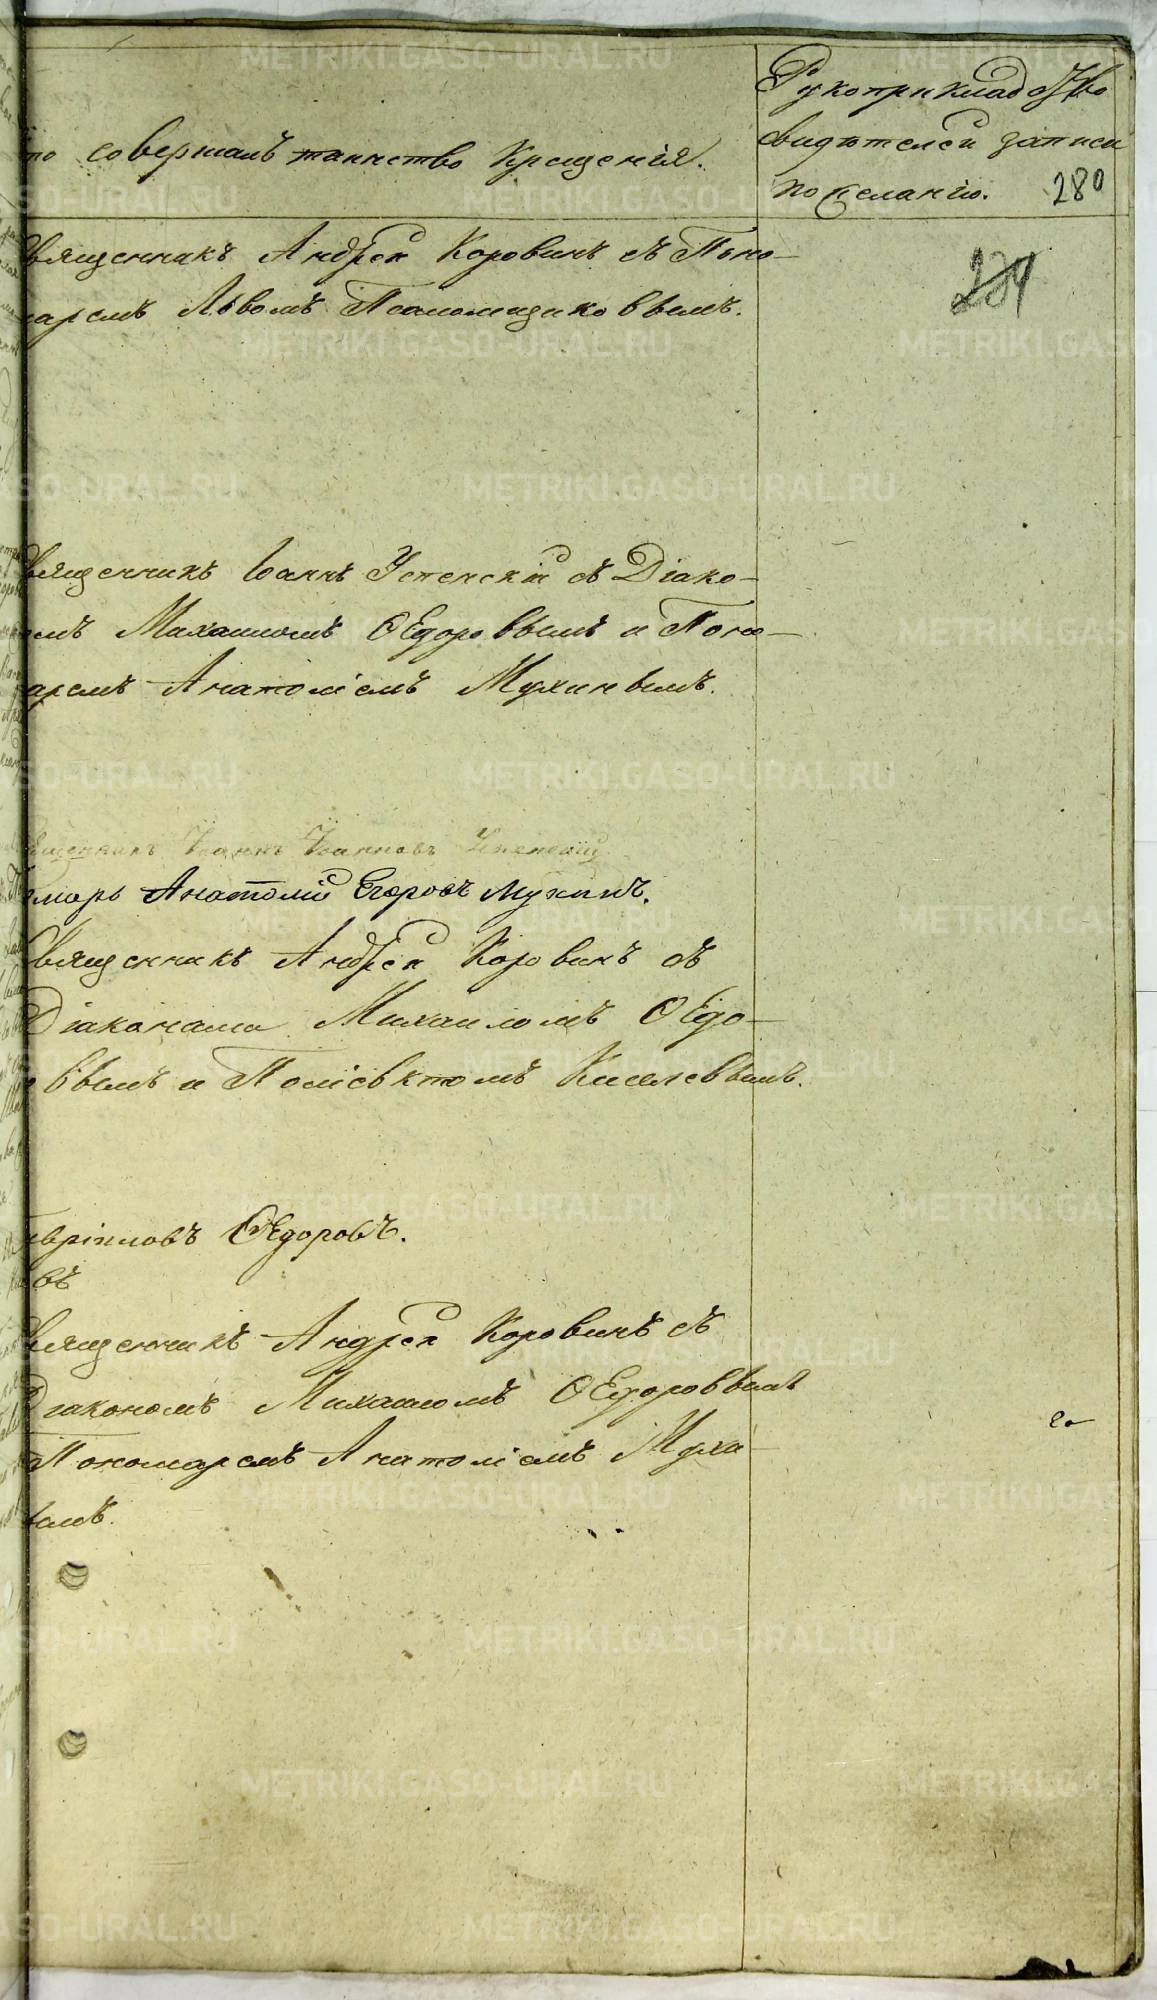 то совершалъ таинство крещенія.
Рукоприкладство
свидѣтелей записи
по желанію.
280
священникъ Андрей Коровинъ съ Поно-
маремъ Львомъ Псаломщиковымъ.
священникъ Іоаннъ Успенскій съ Діако-
омъ Михаиломъ Ѳедоровымъ и Поно-
аремъ Анатоліемъ Мухинымъ.
священникъ Іоаннъ Іоанновъ Успенскій
марь Анатолій Егоровъ Мухинъ.
Священникъ Андрей Коровинъ съ
Діаконами Михаиломъ Ѳедо-
вымъ и Поліевктомъ Киселевымъ.
авріиловъ Ѳедоровъ.
въ
священникъ Андрей Коровинъ съ
Діакономъ Михаиломъ Ѳедоровымъ
Пономаремъ Анатоліемъ Мухи-
ымъ.
METRIKI.GASO-URAL.RU